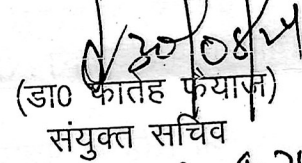 30/08/24
(डा० फातेह फैयाज)
संयुक्त सचिव